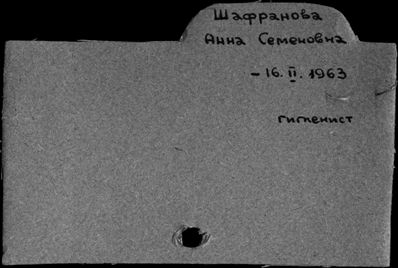 Шафранова
Анна Семеновна
- 16. II. 1963
гигиенист